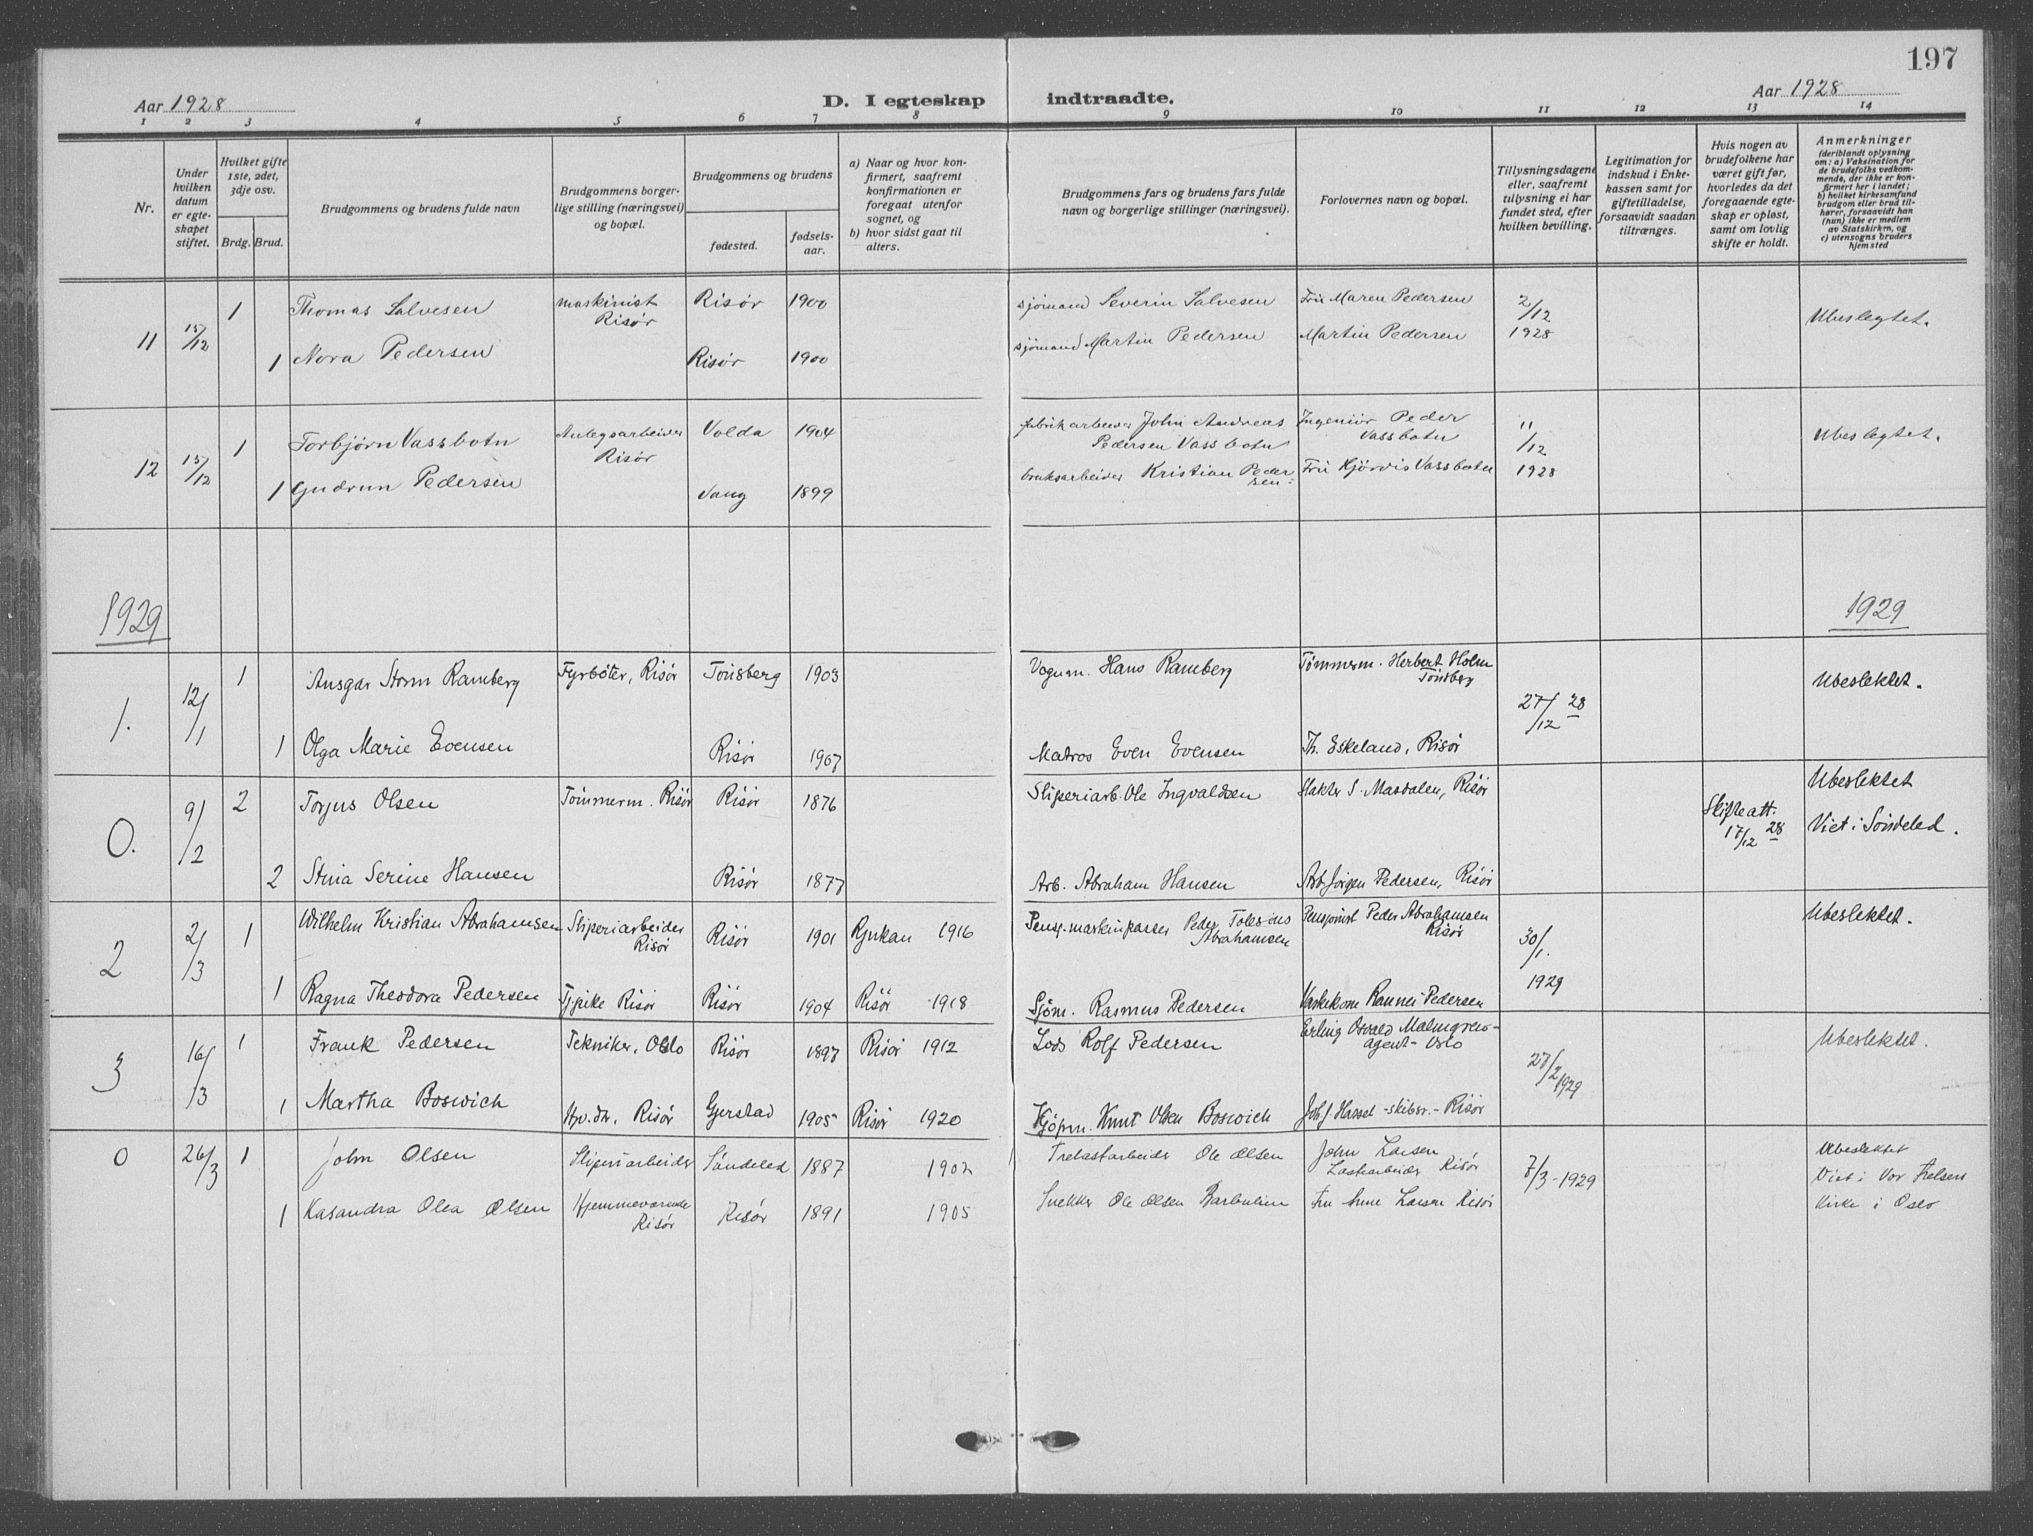 197
Aar 1928
D. I egteskap indtraadte.
Aar 1928
1 2 3 4 5 6 7 8 9 10 11 12 13 14
Nr.
Under hvilken datum er egteskapet stiftet.
Hvilket gifte 1ste, 2det, 3dje osv.
Brdg. Brud.
Brudgommens og brudens fulde navn
Brudgommens borgerlige stilling (næringsvei) og bopæl.
Brudgommens og brudens
fødested.
fødselsaar.
a) Naar og hvor konfirmert, saafremt konfirmationen er foregaat utenfor sognet, og
b) hvor sidst gaat til alters.
Brudgommens fars og brudens fars fulde navn og borgerlige stillinger (næringsvei).
Forlovernes navn og bopæl.
Tillysningsdagene eller, saafremt tillysning ei har fundet sted, efter hvilken bevilling.
Legitimation for indskud i Enkekassen samt for giftetilladelse, forsaavidt saadan tiltrænges.
Hvis nogen av brudefolkene har været gift før, hvorledes da det foregaaende egteskap er opløst, samt om lovlig skifte er holdt.
Anmerkninger
(deriblandt oplysning om: a) Vaksination for de brudefolks vedkommende, der ikke er konfirmert her i landet; b) hvilket kirkesamfund brudgom eller brud tilhører, forsaavidt han (hun) ikke er medlem av Statskirken, og c) utensogns bruders hjemsted
11 15/12 1 Thomas Salvesen maskinist Risør Risør 1900 sjømand Severin Salvesen Fru Maren Pedersen 2/12 1928 Ubeslegtet.
1 Nora Pedersen Risør 1900 sjømand Martin Pedersen Martin Pedersen
12 15/12 1 Torbjørn Vassbotn Anlegsarbeider Risør Volda 1904 fabrikarbeider John Andreas Pedersen Vassbotn Ingeniør Peder Vassbotn 11/12 1928 Ubeslegtet.
1 Gudrun Pedersen Vang 1899 bruksarbeider Kristian Pedersen Fru Hjørdis Vassbotn
1929 1929
1. 12/1 1 Ansgar Storm Ramberg Fyrbøter, Risør Tønsberg 1903 Vognm. Hans Ramberg Tømmerm. Herbert Holm Tønsberg 27/12 28 Ubeslektet.
1 Olga Marie Evensen Risør 1907 Matros Even Evensen Th. Eskeland, Risør
0. 9/2 2 Torjus Olsen Tømmerm. Risør Risør 1876 Sliperiarb. Ole Ingvaldsen S. Masdalen, Risør Skifteatt. 17/12 28 Ubeslektet Viet i Søndeled.
2 Stina Serine Hansen Risør 1877 Arb. Abraham Hansen Arb. Jørgen Pedersen, Risør
2 2/3 1 Wilhelm Kristian Abrahamsen Sliperiarbeider Risør Risør 1901 Rjukan 1916 Pens. maskinpasser Peder Abrahamsen Pensjonist Peder Abrahamsen Risør 30/1. 1929 Ubeslektet.
1 Ragna Theodora Pedersen Risør Risør 1904 Risør 1918 Sjøm. Rasmus Pedersen Pedersen
3 16/3 1 Frank Pedersen Tekniker, Oslo Risør 1897 Risør 1912 Lods Rolf Pedersen Erling Osvald Malmgren - agent - Oslo 27/2 1929 Ubeslektet.
1 Martha Boswich Hv. dtr, Risør Gjerstad 1905 Risør 1920 Kjøpm. Knut Olsen Boswich Joh. J. Hassel - skibsr. - Risør
0 26/3 1 John Olsen Sliperiarbeider Søndeled 1887 1902 Trelastarbeider Ole Olsen John Larsen Lastearbeider Risør 7/3 - 1929 Ubeslektet Viet i Vor Frelsers Kirke i Oslo
1 Kasandra Olea Olsen Hjemmeværende Risør Risør 1891 1905 Snekker Ole Olsen Barbulien Fru Anne Larsen Risør